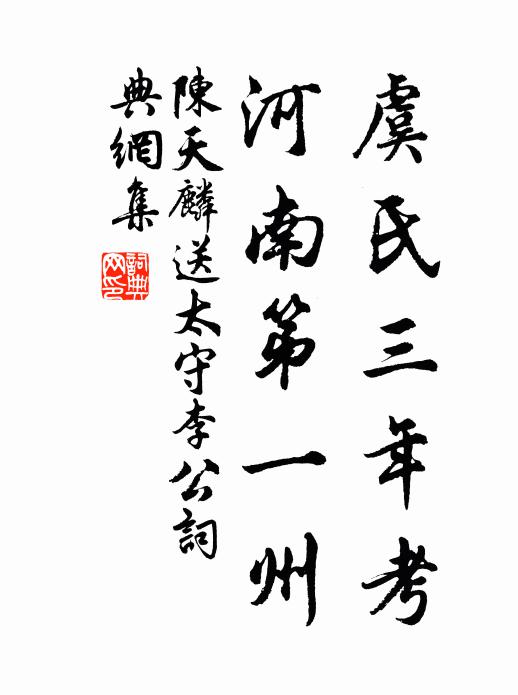 虞氏三年考
河南第一州
陳天麟送太守李公詞
典網集
詞典
网印